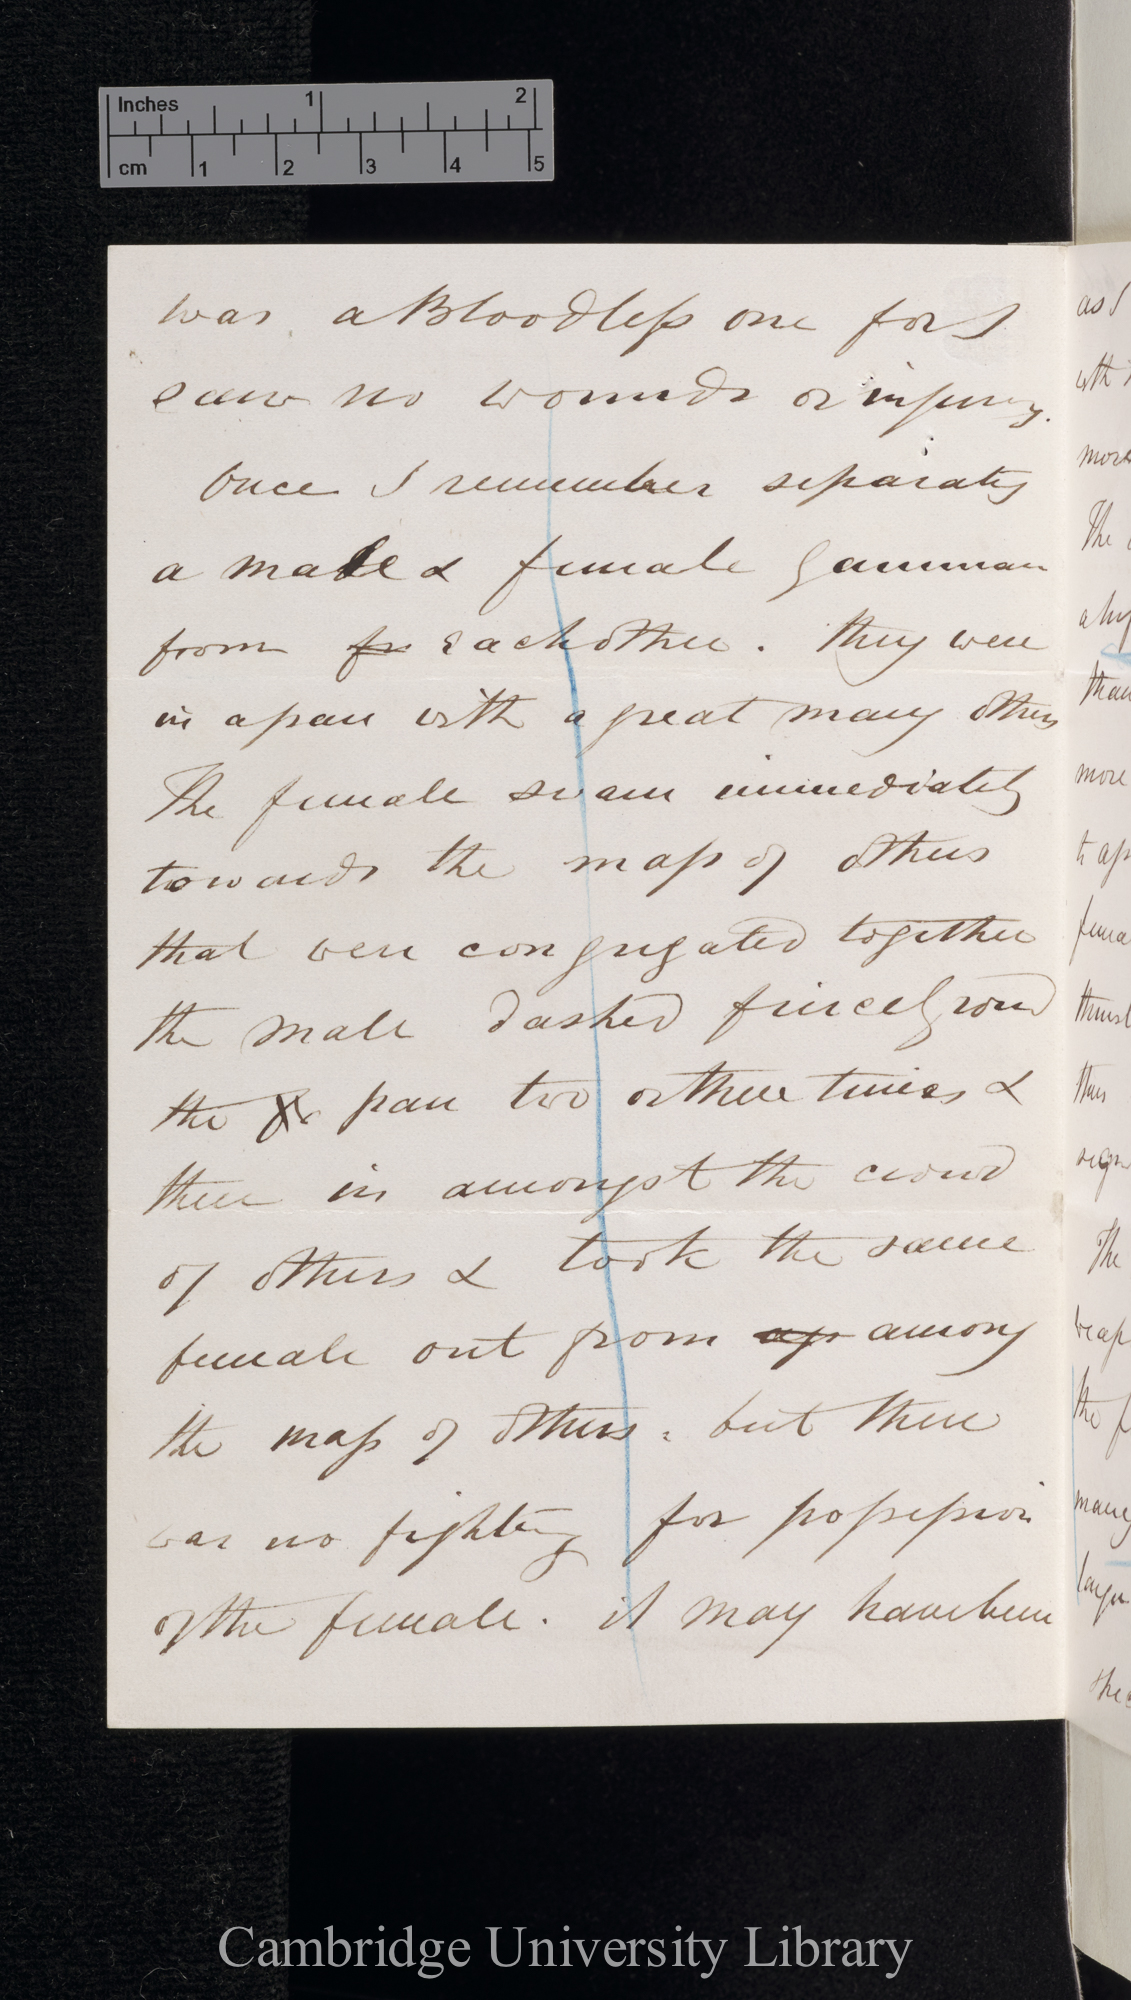 Inches 1 2
cm 1 2 3 4 5
was a Bloodless one for I
saw no wounds or injury.
Once I remember separatig
a male & female Gammari
from fr eachother. they were
in a pan with a great many others
The female swam immediately
towards the mass of others
that were congregated together
the male dashed fiercely round
the pan two or three times &
then in amongst the crowd
of others & took the same
female out from among
the mass of others. but there
was no fighting for possession
of the female. it may have been
as I
with
more
The
than
more
to
thus
The
the f
many
Cambridge University Library